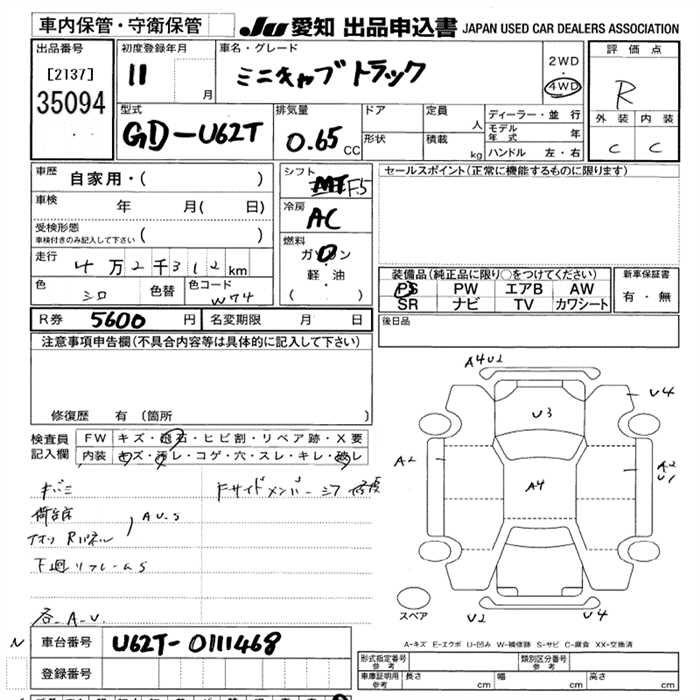 車内保管・守衛保管
JU 愛知 出品申込書 JAPAN USED CAR DEALERS ASSOCIATION
出品番号
[2137]
35094
初度登録年月
11
月
車名・グレード
ミニキャブトラック
2WD
・
4WD
評価点
R
外装 内装
C C
型式
GD-U62T
排気量
0.65 CC
ドア
形状
定員
人
積載
kg
ディーラー・並行
モデル年式 年
ハンドル 左・右
車歴
自家用・( )
車検
年 月( 日)
受検形態
車検付きのみ記入して下さい ( )
走行
4万2千312km
色
シロ
色替
色コード
W74
シフト
F5
冷房
AC
燃料
ガソリン
・
軽・油
( )
セールスポイント(正常に機能するものに限ります)
装備品(純正品に限り○をつけてください)
PS PW エアB AW
SR ナビ TV カワシート
新車保証書
有・無
R券 5600 円
名変期限 月 日
後日品
注意事項申告欄(不具合内容等は具体的に記入して下さい)
修復歴 有(箇所 )
検査員
記入欄
FW キズ・飛石・ヒビ割・リペア跡・X要
内装 キズ・汚レ・コゲ・穴・スレ・キレ・破レ
荷台床
下廻リフレームS
A U.S
各-A-U.
A4U2
U4
U3
A2
A2
U1
A4
スペア
U2
U4
N
車台番号 U62T-0111468
登録番号
A-キズ E-エクボ U-凹み W-補修跡 S-サビ C-腐食 XX-交換済
形式指定番号
参考
類別区分番号
参考
車庫証明用
参考
長さ cm
幅 cm
高さ cm